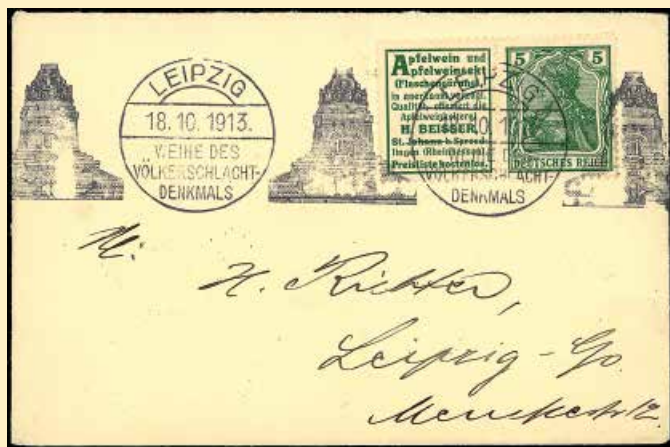 LEIPZIG
18.10.1913.
WEIHE DES
VÖLKERSCHLACHT-
DENKMALS
Apfelwein und
Apfelweinsekt
(Flaschengärung)
in anerkannt
Qualität, offeriert die
Apfelweinkelterei
H. BEISSER,
St. Johann b. Sprend-
lingen (Rheinhessen)
Preisliste kostenlos.
5 5
DEUTSCHES REICH
VÖLKERSCHLACHT-
DENKMALS
H. Richter,
Leipzig - Go